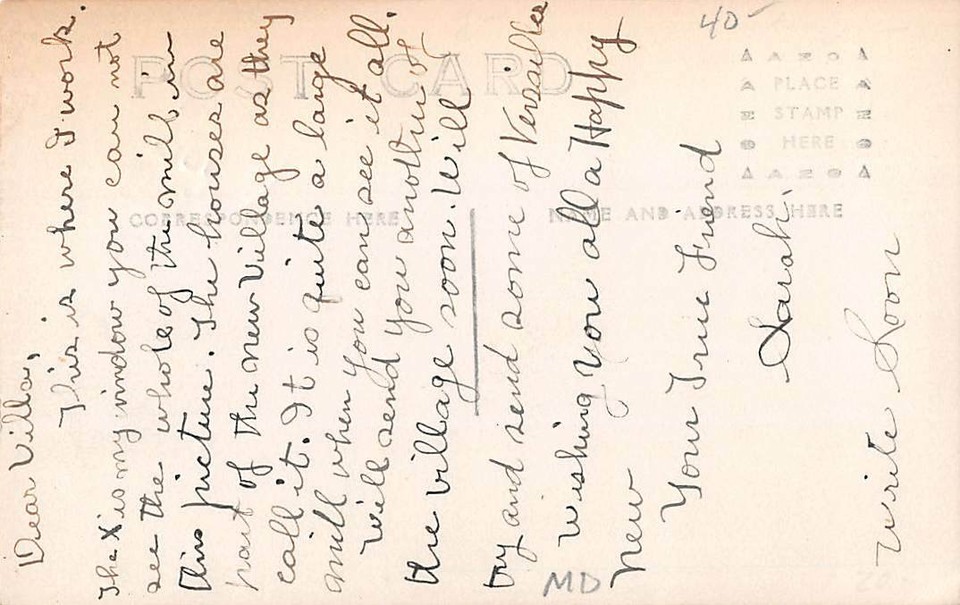 Dear Villa,
This is where I work.
The X is my window you can not
see the whole of the mill in
this picture. The houses are
part of the new Village as they
call it. It is quite a large
mill when you can see it all.
Will send you another of
the village soon. Will
try and send some of Versailles
Wishing you all a Happy
New
Your True Friend
Sarah.
Write Soon
POST CARD
CORRESPONDENCE HERE
NAME AND ADDRESS HERE
PLACE
STAMP
HERE
40-
MD